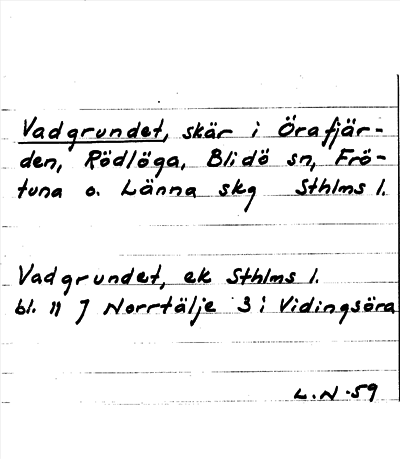 Vadgrundet, skär i Örafjär-
den, Rödlöga, Blidö sn, Frö-
tuna o. Länna skg Sthlms l.
Vadgrundet, ek Sthlms l.
bl. 11 J Norrtälje 3 i Vidingsöra
L.N -59